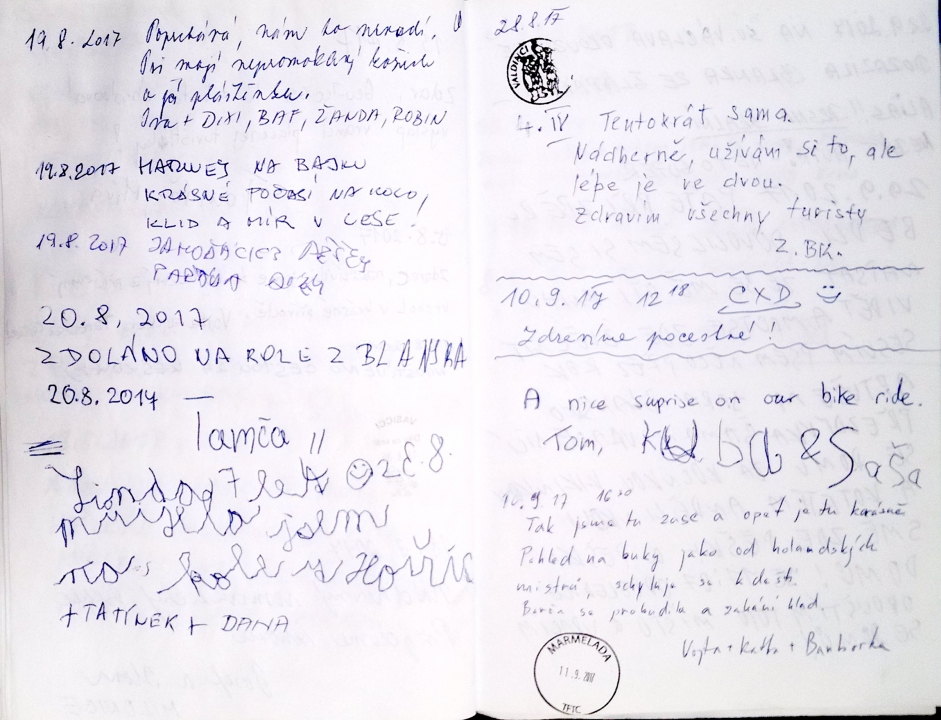 19.8.2017 Popichává, nám to nevadí.
Psi mají nepromokavý kožich
a já pláštěnku.
Iva + DIXI, BAF, ŽANDA, ROBIN
19.8.2017 HARWEJ NA BAJKU
KRÁSNÉ POČASÍ NA KOLO,
KLID A MÍR V LESE!
19.8.2017
PARDUA
20.8.2017
ZDOLÁNO NA KOLE Z BLANSKA
20.8.2017 —
Tamča 11
Linda 7 let ☺ 28.8.
přijela jsem
na kole z Hořic
+ TATÍNEK + DANA
28.8.17
VALDIACI
4. IX Tentokrát sama.
Nádherně, užívám si to, ale
lépe je ve dvou.
Zdravím všechny turisty
Z. BK.
10.9.17 12 18 CXD ☺
Zdravíme pocestné!
A nice suprise on our bike ride.
Tom, Kuba & Saša
10.9.17 16 30
Tak jsme tu zase a opět je tu krásně
Pohled na buky jako od holandských
mistrů, schyluje se k dešti.
Barča se probudila a zahání hlad.
Vojta + Katka + Bauborka
MARMELADA
11.9.2017
TFTC